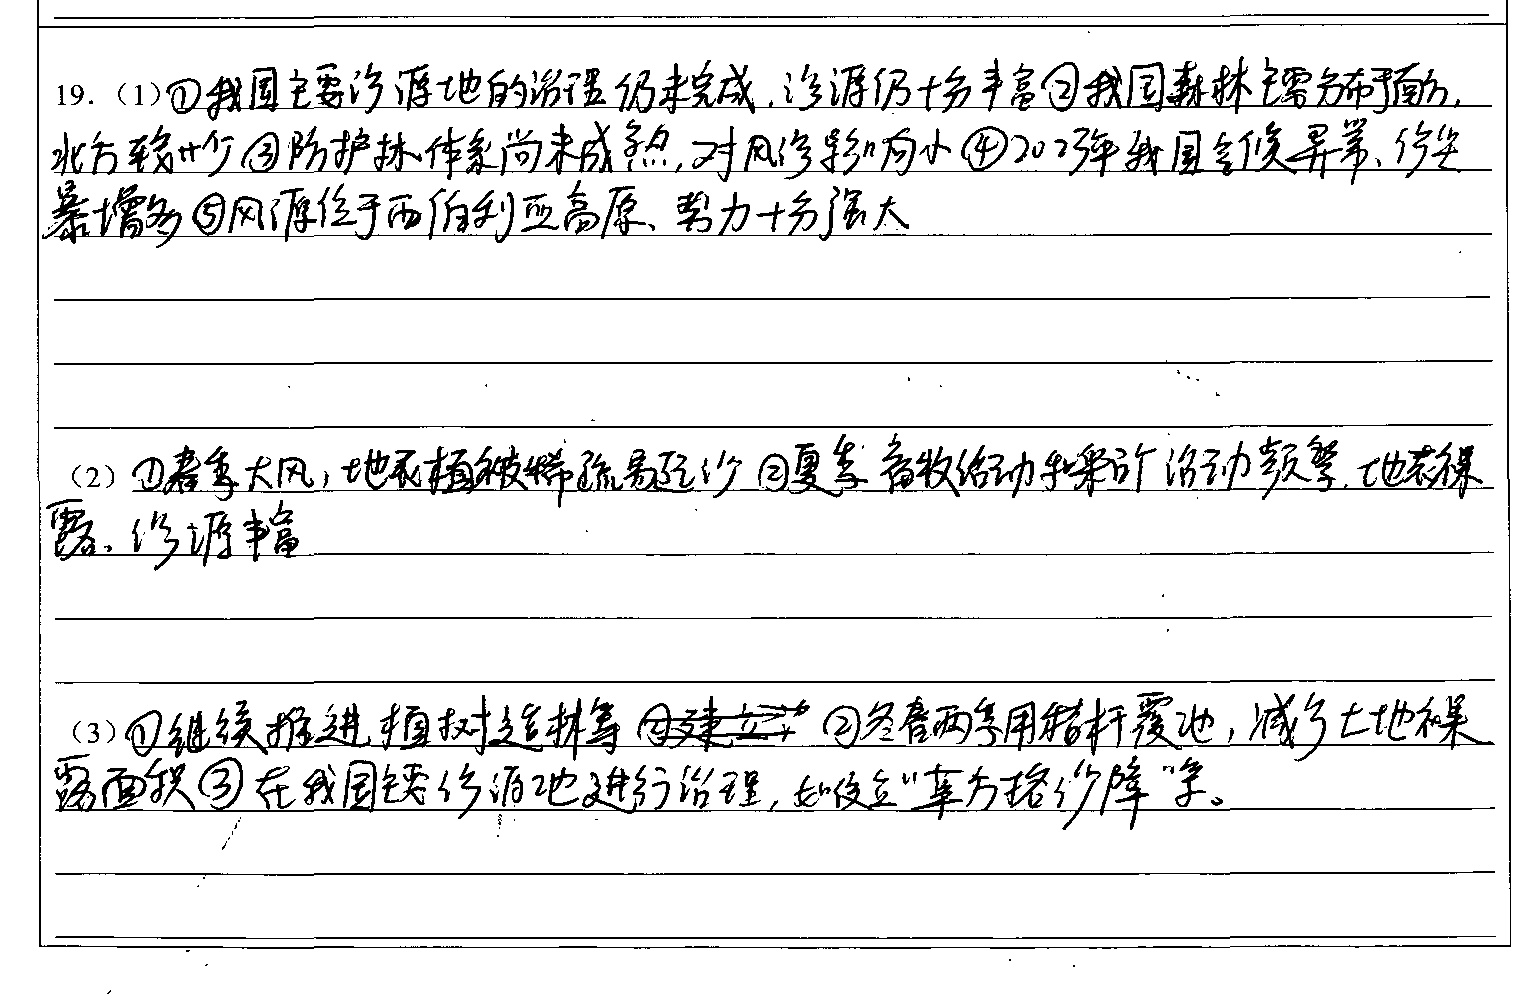 19.（1）①我国主要沙源地的治理仍未完成，沙源仍十分丰富②我国森林主要分布于南方，
北方较少③防护林体系尚未成熟，对风沙影响小④2023年我国气候异常、沙尘
暴增多⑤风源位于西伯利亚高原、势力十分强大
（2）①春季大风，地表植被稀疏易起沙②夏季畜牧活动和采矿活动频繁，地表裸
露、沙源丰富
（3）①继续推进植树造林等②冬春两季用秸秆覆地，减少土地裸
露面积③在我国主要沙源地进行治理，如设立“草方格沙障”等。